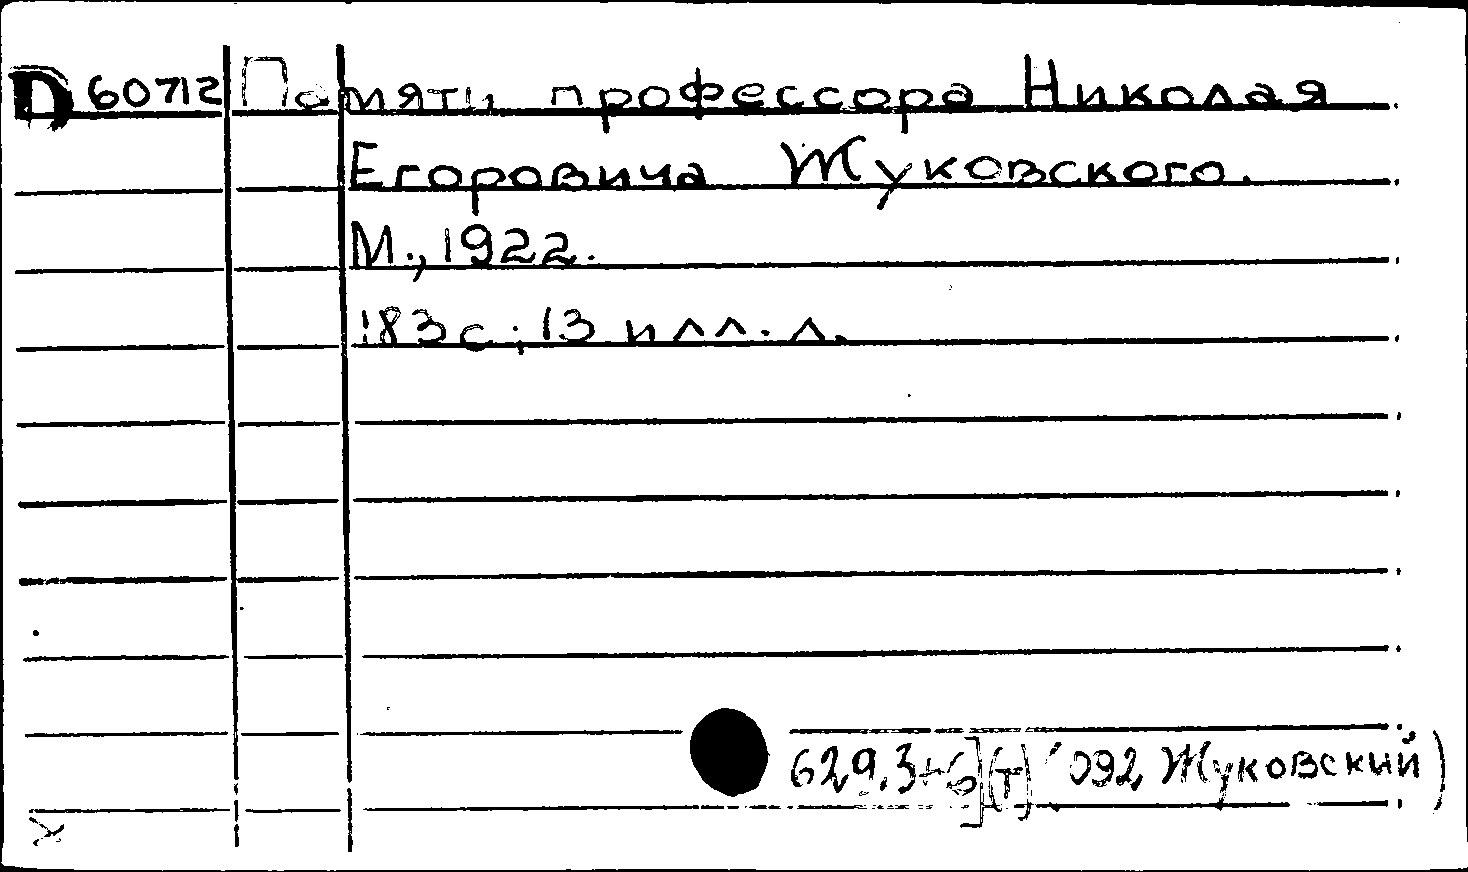 D 60712 Памяти профессора Николая
Егоровича Жуковского.
М., 1922.
183 с.; 13 илл. л.
629.3+6](т)'092 Жуковский)